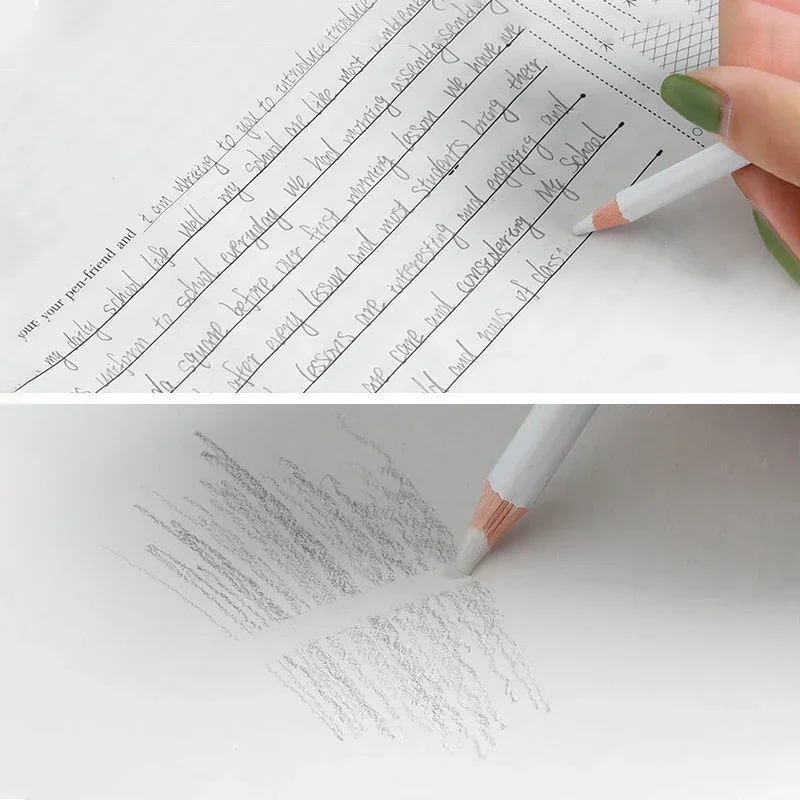 your your pen-friend and i am writing to you to introduce introduce
my daily school life well, my school are like most
uniform to school everyday we had morning assembly sending
square before our first morning lesson we have we
after every lesson and most students bring their
lessons are interesting and engaging and
are care and considering My School
and runs of class